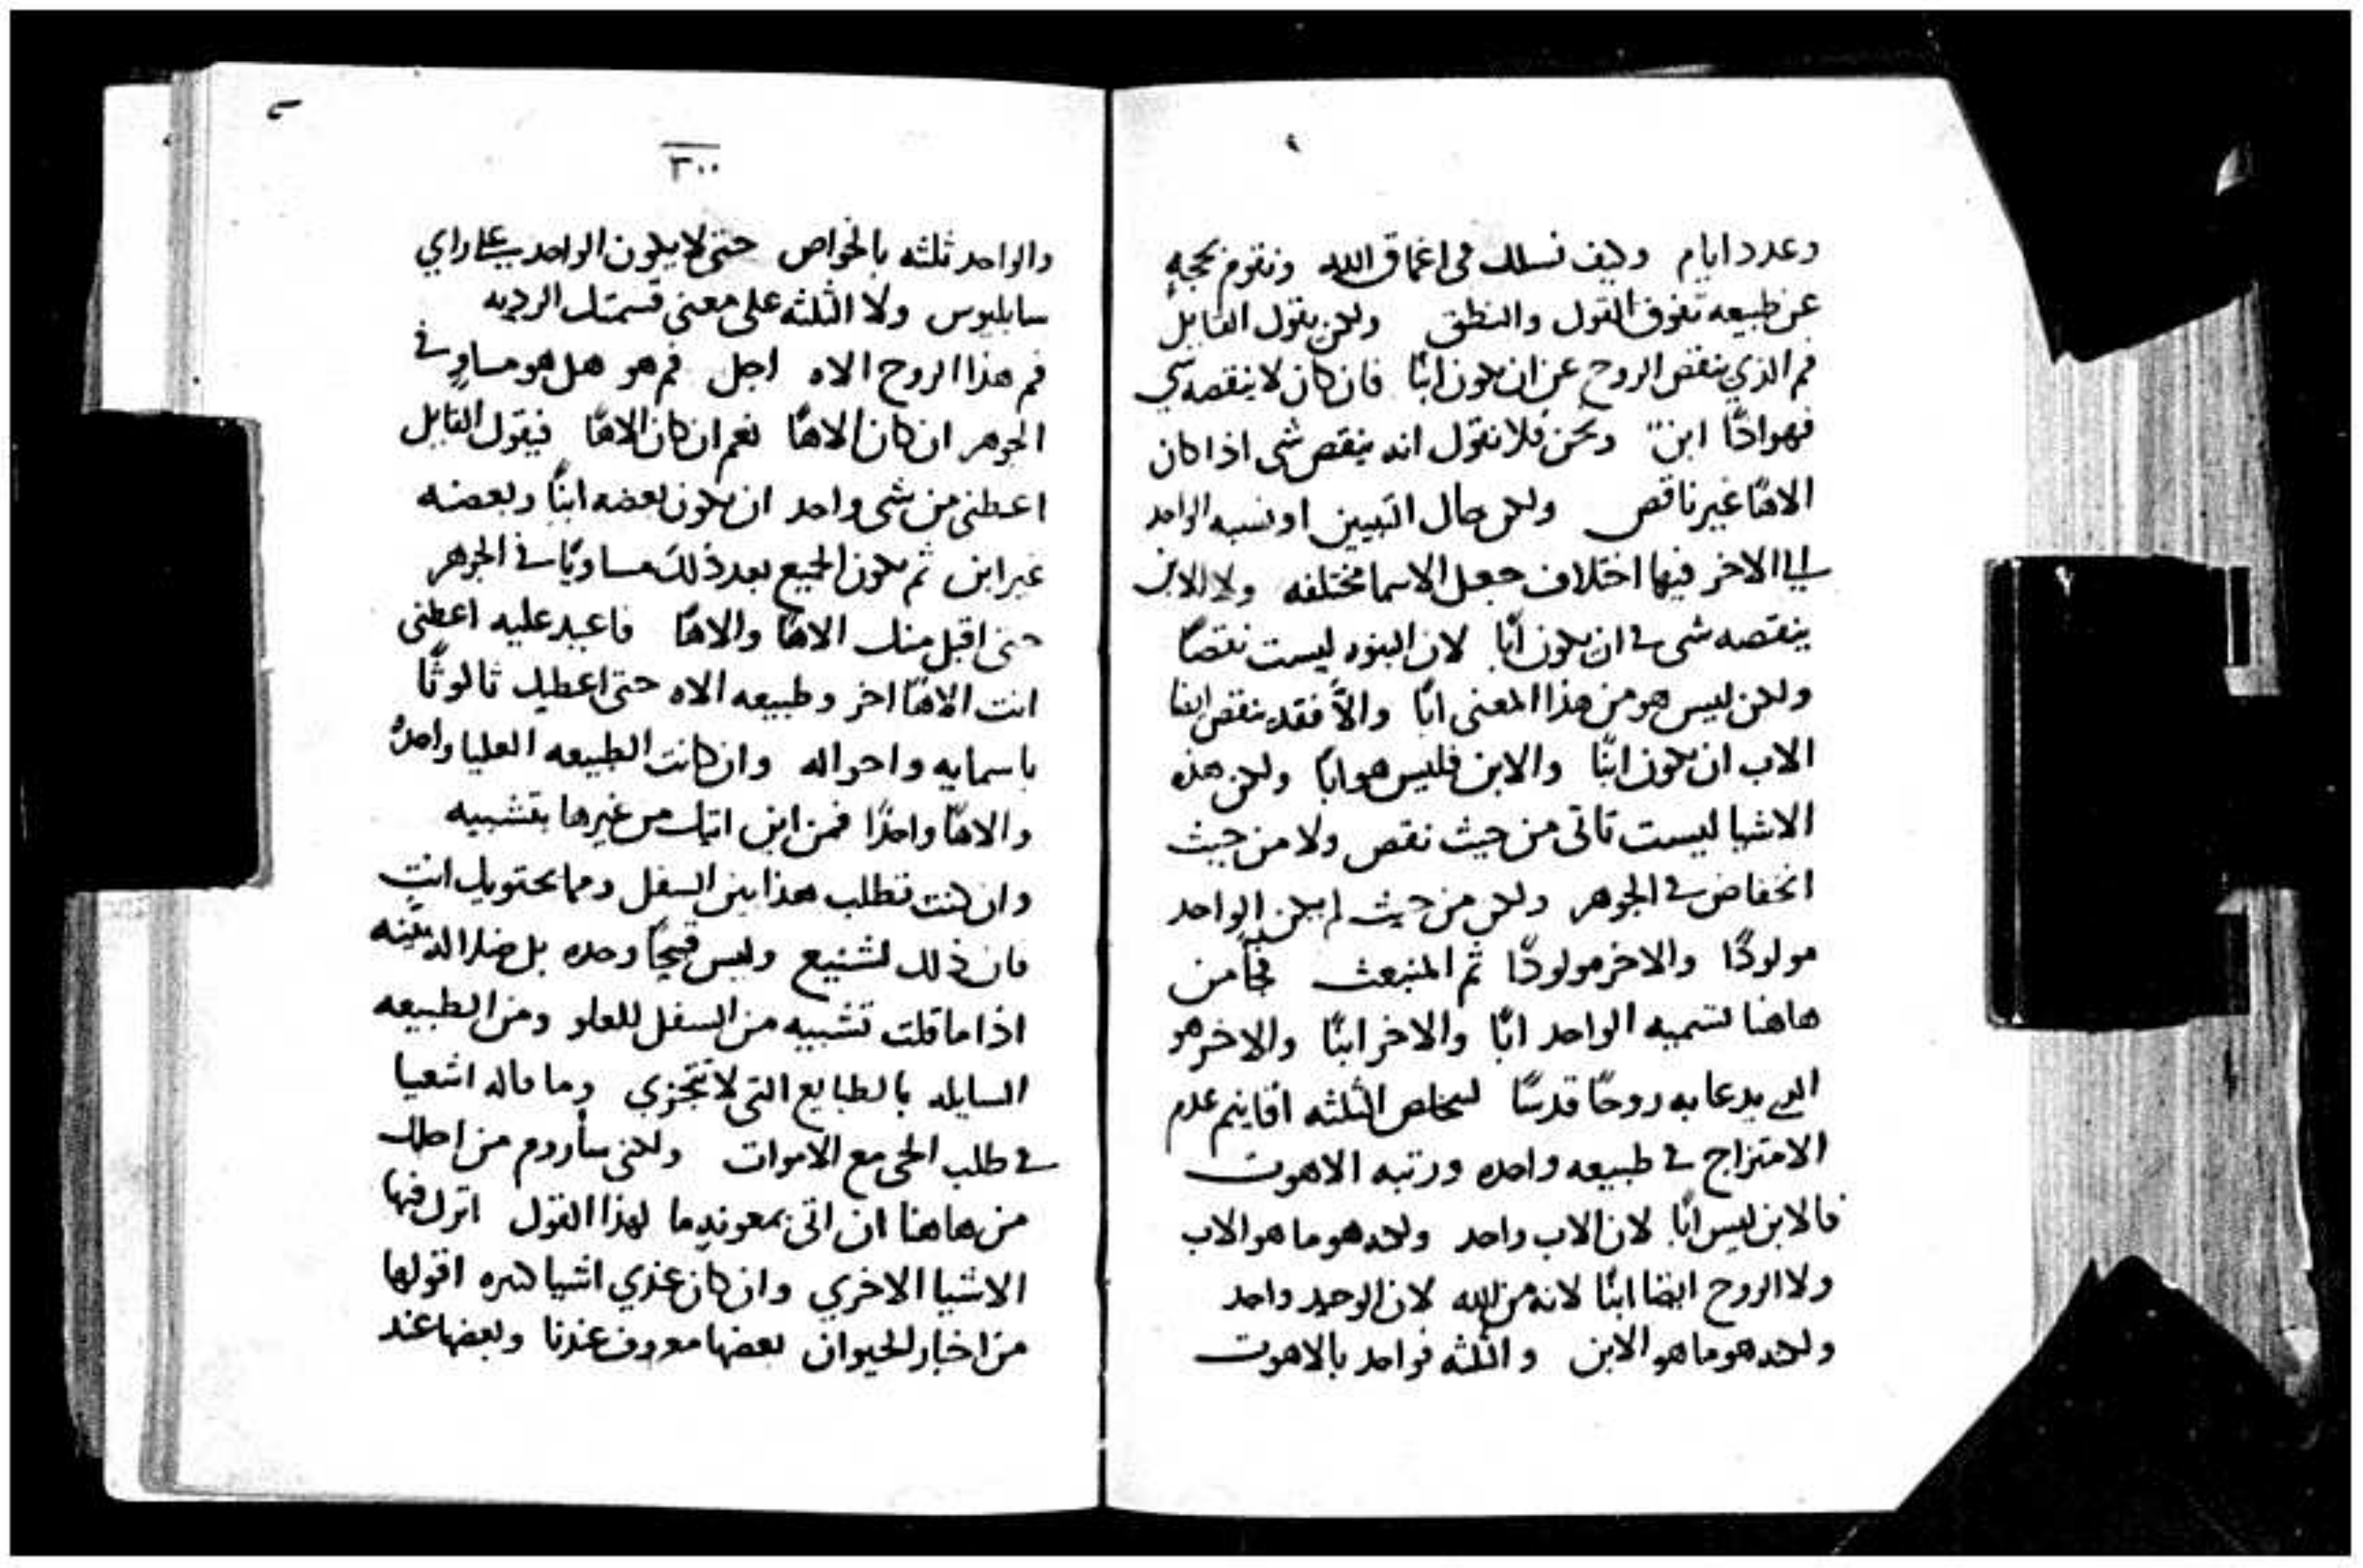 وعدد ايام وكيف نسلك في اعماق الله ونقوم بحجهٍ
عن طبيعه تفوق القول والنطق ولكن يقول القايل
فم الذي ينقص الروح عن ان يكون ابنًا فان كان لا ينقصه شي
فهو اذًا ابن ونحن فلا نقول انه ينقص شي اذا كان
الاهًا غير ناقص ولكن حال التبيين او نسبه الواحد
الي الاخر فيها اختلاف جعل الاسما مختلفه ولا للابن
ينقصه شي في ان يكون ابًا لان البنوه ليست نقصًا
ولكن ليس هو من هذا المعنى ابًا والاَّ فقد ينقص ايضا
الاب ان يكون ابنًا والابن فليس هو ابًا ولكن هذه
الاشيا ليست تاتى من حيث نقص ولا من حيث
انخفاض في الجوهر ولكن من حيث لم يكن الواحد
مولودًا والاخر مولودًا ثم المنبعث فجا من
هاهنا لتسميه الواحد ابًا والاخر ابنًا والاخر هو
الذي يدعا به روحًا قدسًا ليخلص الثلثه اقانيم عدم
الامتزاج في طبيعه واحده ورتبه الاهوت
فالابن ليس ابًا لان الاب واحد ولكنه هو ما هو الاب
ولا الروح ايضا ابنًا لانه من الله لان الوحيد واحد
ولكنه هو ما هو الابن والثلثه فواحد بالاهوت
٣٠٠
والواحد ثلثه بالخواص حتى لا يكون الواحد على راي
سابليوس ولا الثلثه على معنى قسمتك الرديه
فم هذا الروح الاه اجل فم هو هل هو مساوٍ في
الجوهر ان كان الاهًا نعم ان كان الاهًا فيقول القايل
اعطنى من شى واحد ان يكون بعضه ابنًا وبعضه
غير ابن ثم يكون الجميع بعد ذلك مساويًا في الجوهر
حتى اقبل منك الاهًا والاهًا فاعيد عليه اعطنى
انت الاهًا اخر وطبيعه الاه حتى اعطيك ثالوثًا
باسمايه واحواله وان كانت الطبيعه العليا واحدهً
والاهًا واحدًا فمن اين اتيك من غيرها بتشبيه
وان كنت تطلب هذا من السفل ومما يحتويك انت
فان ذلك لشنيع وليس قبيحًا وحده بل
اذا ما قلت تشبيه من السفل للعلو ومن الطبيعه
السايله بالطبايع التى لا تتجزي وما قاله اشعيا
في طلب الحى مع الاموات ولكنى سأروم من اجلك
من هاهنا ان اتى بمعونهٍ ما لهذا القول اترك فيها
الاشيا الاخري وان كان عندي اشيا كثيره اقولها
من اخبار الحيوان بعضها معروف عندنا وبعضها عند